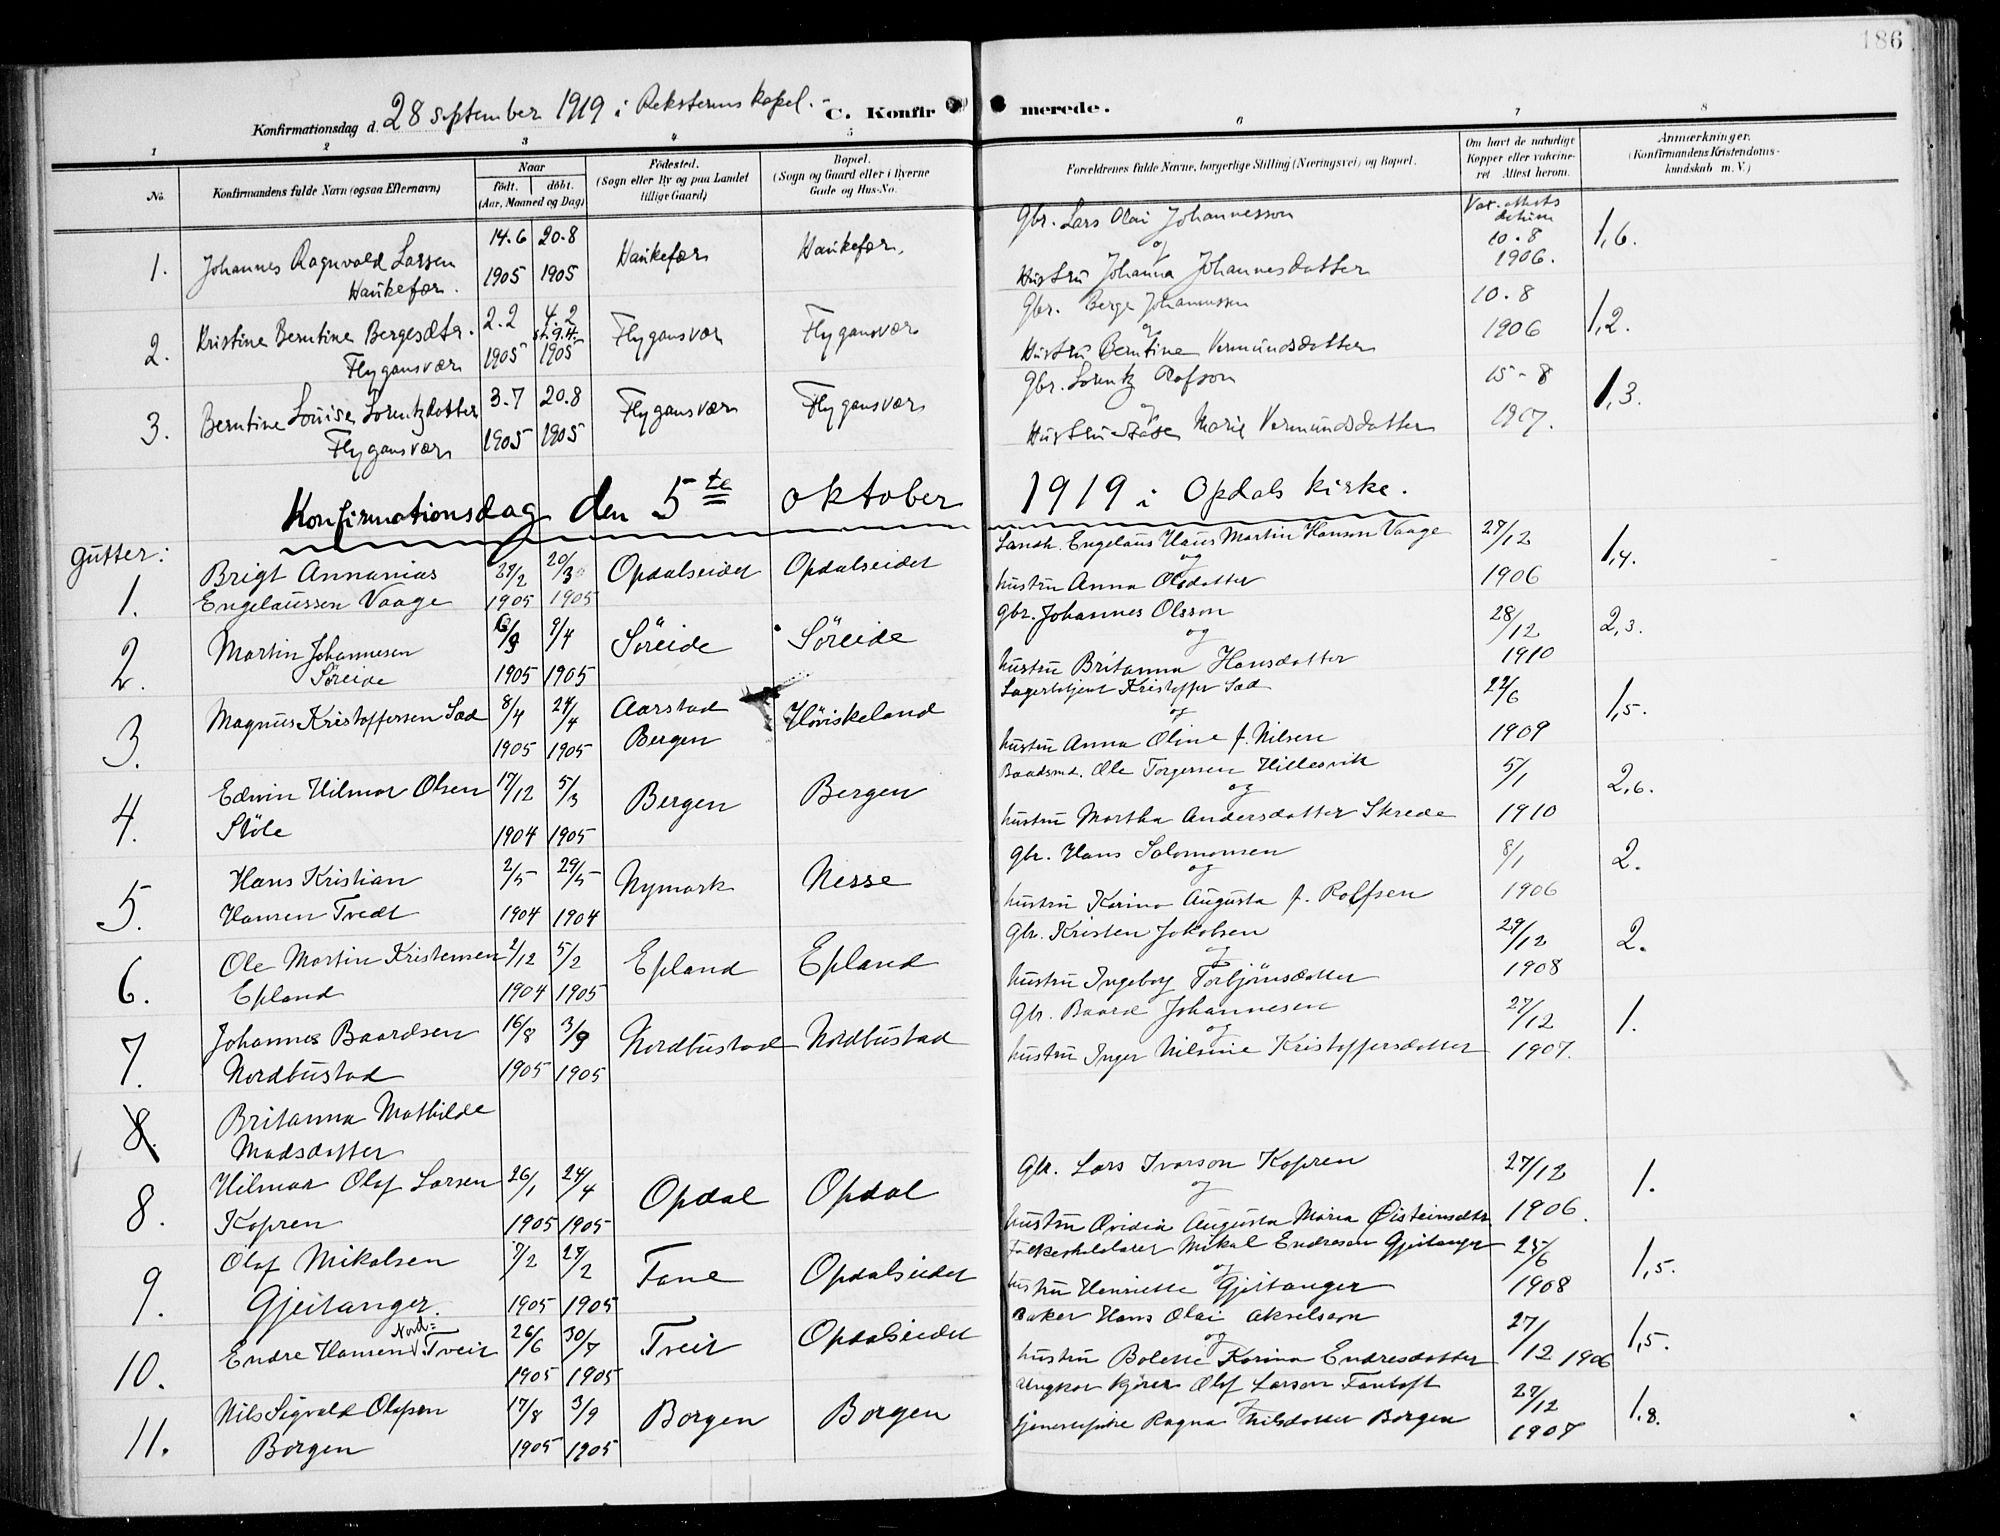 186
Konfirmationsdag d. 28 september 1919 i Reksterens kapel.
C. Konfirmerede.
1 2 3 4 5 6 7 8
No.
Konfirmandens fulde Navn (ogsaa Efternavn)
Naar
født. døbt.
(Aar, Maaned og Dag)
Fødested.
(Sogn eller By og paa Landet
tillige Gaard)
Bopæl.
(Sogn og Gaard eller i Byerne
Gade og Hus-No.
Forældrenes fulde Navne, borgerlige Stilling (Næringsvei) og Bopæl.
Om havt de naturlige
Kopper eller vakcine-
ret Attest herom.
Anmærkninger.
(Konfirmandens Kristendoms-
kundskab m. V.)
1. Johannes Ragnvald Larsen
Haukefær.
14.6 1905
20.8 1905
Haukefær
Haukefær.
Gbr. Lars Olai Johannesson
og
Hustru Johanna Johannesdatter
Vac. attest
10.8
1906.
1,6.
2. Kristine Berntine Bergesdtr.
Flygansvær
2.2 1905
4.2 1905
Flygansvær
Flygansvær
Gbr. Berge Johannessen
og
Hustru Berntine Vermundsdatter
10.8
1906
1,2.
3. Berntine Louise Lorentzdatter
Flygansvær
3.7 1905
20.8 1905
Flygansvær
Flygansvær
Gbr. Lorentz Rofson
og
Hustru Aase Marie Vermundsdatter
15-8
1907.
1,3.
Konfirmationsdag den 5te oktober 1919 i Opdals kirke.
Gutter:
1. Brigt Annanias
Engelaussen Vaage
27/2 1905
20/3 1905
Opdalseidet
Opdalseidet
Landh. Engelaus Hans Martin Hanson Vaage
og
hustru Anna Olsdatter
27/12
1906
1,4.
2. Martin Johannesen
Søreide
6/3 1905
9/4 1905
Søreide
Søreide
gbr. Johannes Olsson
og
hustru Britanna Hansdatter
28/12
1910
2,3.
3. Magnus Kristoffersen Sæd
8/4 1905
24/4 1905
Aarstad
Bergen
Høviskeland
Lagerbetjent Kristoffer Sæd
og
hustru Anna Oline f. Nilsen
22/6
1909
1,5.
4. Edwin Hilmar Olsen
Støle
17/12 1904
5/3 1905
Bergen
Bergen
Baadsmd. Ole Torgersen Hillesvik
og
hustru Martha Andersdatter Skrede
5/1
1910
2,6.
5. Hans Kristian
Hansen Tvedt
2/5 1904
29/5 1904
Nymark
Nesse
gbr. Hans Salomonsen
og
hustru Karina Augusta f. Rolfsen
8/1
1906
2.
6. Ole Martin Kristensen
Epland
2/12 1904
5/2 1905
Epland
Epland
Gbr. Kristen Jokolsen
og
hustru Ingeborg Torbjörnsdatter
29/12
1908
2.
7. Johannes Baardsen
Nordbustad
16/8 1905
3/9 1905
Nordbustad
Nordbustad
Gbr. Baard Johannesen
og
hustru Inger Nilsine Kristoffersdatter
27/12
1907.
1.
8. Britanna Mathilde
Madsdatter
8. Hilmar Olaf Larsen
Kopren
26/1 1905
24/4 1905
Opdal
Opdal
Gbr. Lars Ivarson Kopren
og
hustru Ovidia Augusta Maria Øisteinsdtr
27/12
1906.
1.
9. Olaf Mikalsen
Gjeitanger.
7/2 1905
27/2 1905
Fane
Opdalseidet
Folkeskolelærer Mikal Endresen Gjeitanger
og
hustru Henriette Gjeitanger
25/6
1908
1,5.
10. Endre Hansen Nord=Tveit
26/6 1905
30/7 1905
Tveit
Opdalseidet
Baker Hans Olai Akselsson
og
hustru Bolette Karina Endresdatter
27/12 1906
1,5.
11. Nils Sigvald Olafsen
Borgen
17/8 1905
3/9 1905
Borgen
Borgen
Ungkar kjører Olaf Larson Fantoft
og
tjenestepike Ragna Nilsdatter Borgen
27/12
1907
1,8.